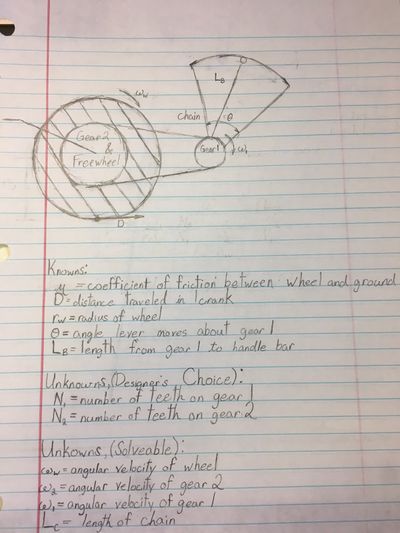 ωw
L_B
Chain
θ
Gear 2
&
Freewheel
Gear 1
ω₁
D
Knowns:
μ = coefficient of friction between wheel and ground
D = distance traveled in 1 crank
rw = radius of wheel
θ = angle lever moves about gear 1
L_B = length from gear 1 to handle bar
Unknowns, (Designer's Choice):
N₁ = number of teeth on gear 1
N₂ = number of teeth on gear 2
Unkowns, (Solveable):
ωw = angular velocity of wheel
ω₂ = angular velocity of gear 2
ω₁ = angular velocity of gear 1
L_C = length of chain